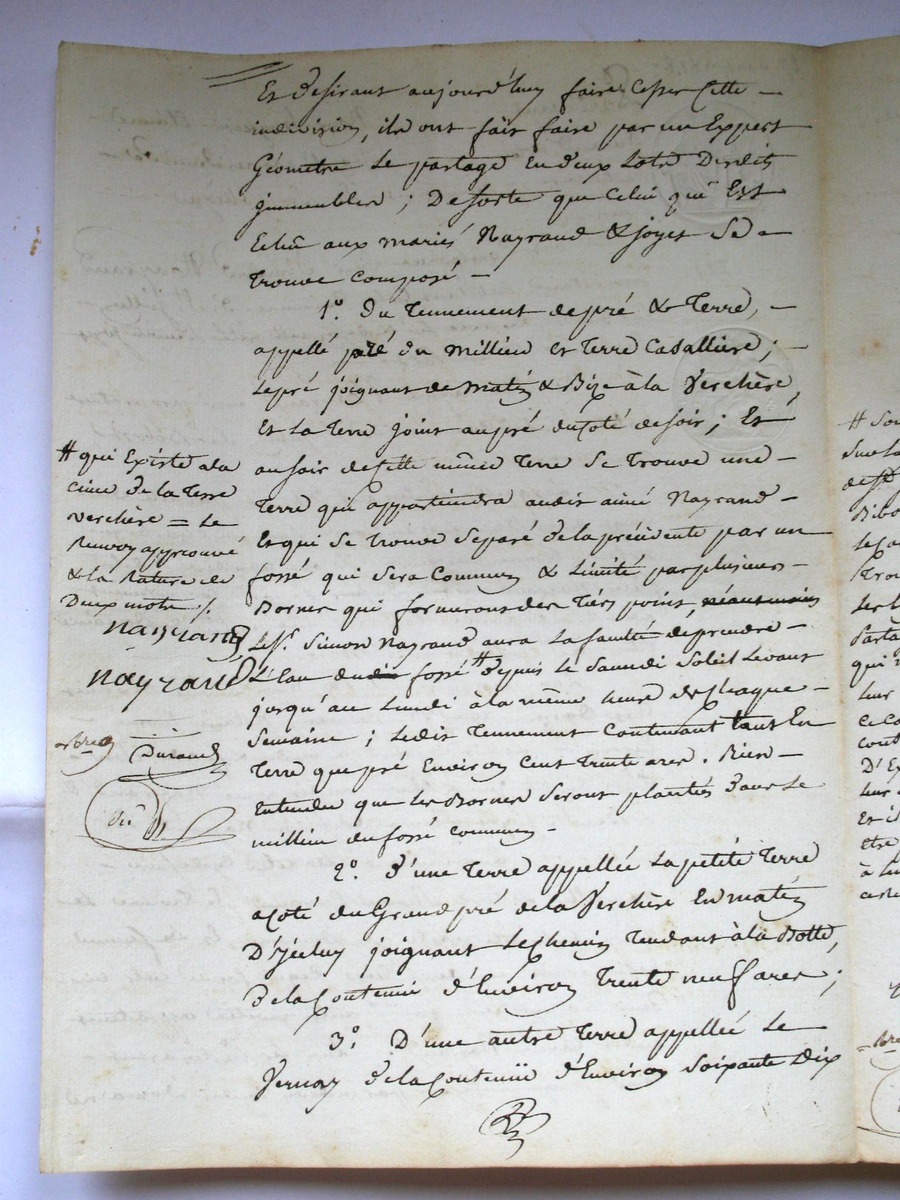 Et desirant aujourd'huy faire Cesser Cette
indivision, ils ont fait faire par un Expert
Géometre le partage En deux Lots Desdits
immeubles ; De sorte que Celui qui Est
Echu aux mariés Nayrand & joyet Se
trouve Composé
1o. Du Tennement de pré & Terre,
appellé pré du Millieu et terre Casalliere ;
Le pré joignant de Matin & Bize à la Verchère,
Et La terre joint au pré du Coté de soir ; Et
au soir de Cette même terre Se trouve une
Terre qui appartiendra audit aimé Nayrand
Et qui Se trouve Separé de la précédente par un
fossé qui Sera Commun & Limité par plusieurs
Bornes qui formeront des Tiers point, néant moins
Le Sr. Simon Nayrand aura La faculté de prendre
L'Eau dudit fossé # depuis le Samedi Soleil Levant
jusqu'au Lundi à la même heure de Chaque
Semaine ; Ledit Tennement Contenant tant En
Terre que pré Environ Cent trente ares. Bien
Entendu que les Bornes Seront plantés dans le
millieu du fossé commun
2o. d'une Terre appellée La petite Terre
a Coté du Grand pré de la Verchère En matin
D'jceluy joignant Le Chemin Tendant à la Botte,
de la Contenue d'Environ Trente neuf ares ;
3o. D'une autre Terre appellée Le
Vernay de la Contenue d'Environ Soixante Dix
# qui Existe a la
cime de la Terre
verchère = Le
Renvoy approuvé
& la Rature de
Deux mots ./.
nayrand
nayrand
Durand
# Sou